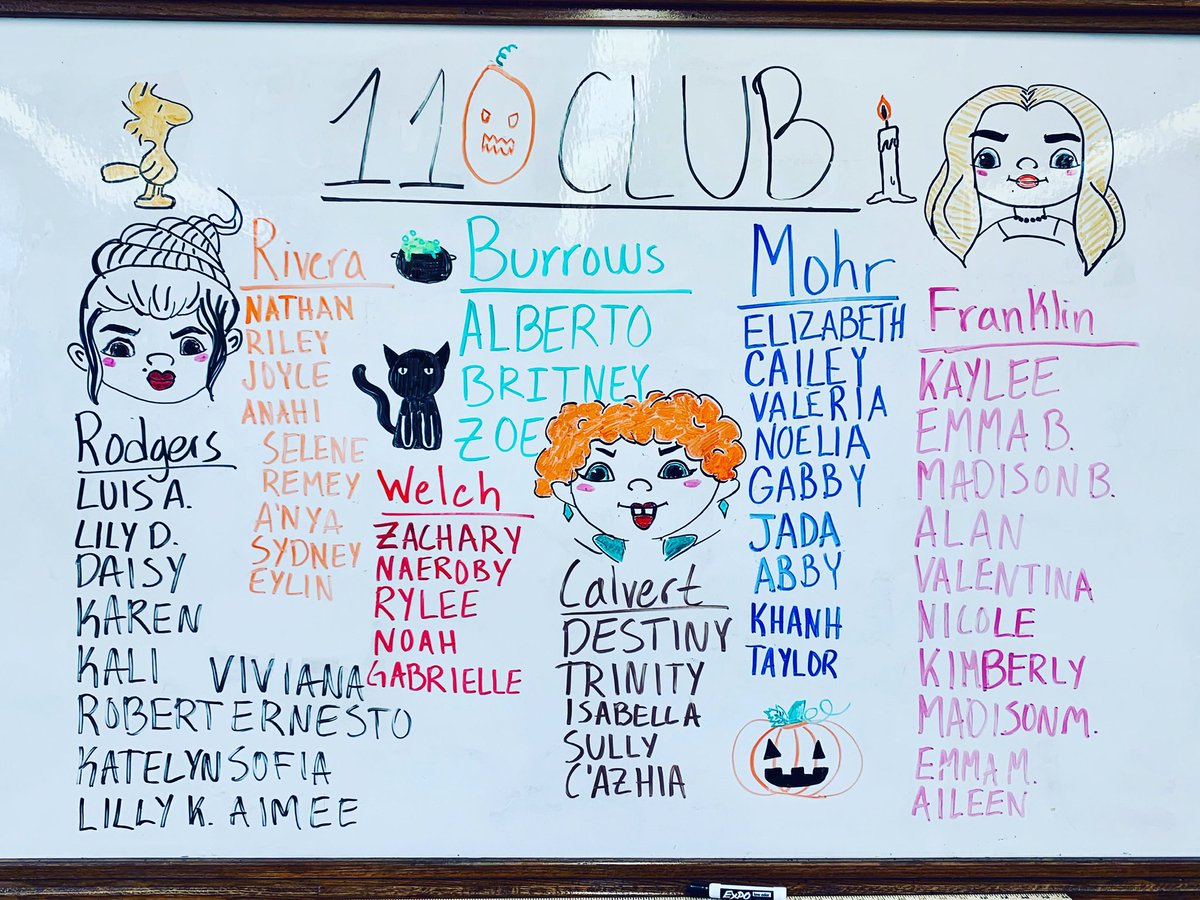 110 CLUB
Rodgers
LUIS A.
LILY D.
DAISY
KAREN
KALI
ROBERT
KATELYN
LILLY K.
VIVIANA
ERNESTO
SOFIA
AIMEE
Rivera
NATHAN
RILEY
JOYCE
ANAHI
SELENE
REMEY
A'NYA
SYDNEY
EYLIN
Welch
ZACHARY
NAEROBY
RYLEE
NOAH
GABRIELLE
Burrows
ALBERTO
BRITNEY
ZOE
Calvert
DESTINY
TRINITY
ISABELLA
SULLY
C'AZHIA
Mohr
ELIZABETH
CAILEY
VALERIA
NOELIA
GABBY
JADA
ABBY
KHANH
TAYLOR
Franklin
KAYLEE
EMMA B.
MADISON B.
ALAN
VALENTINA
NICOLE
KIMBERLY
MADISON M.
EMMA M.
AILEEN
EXPO